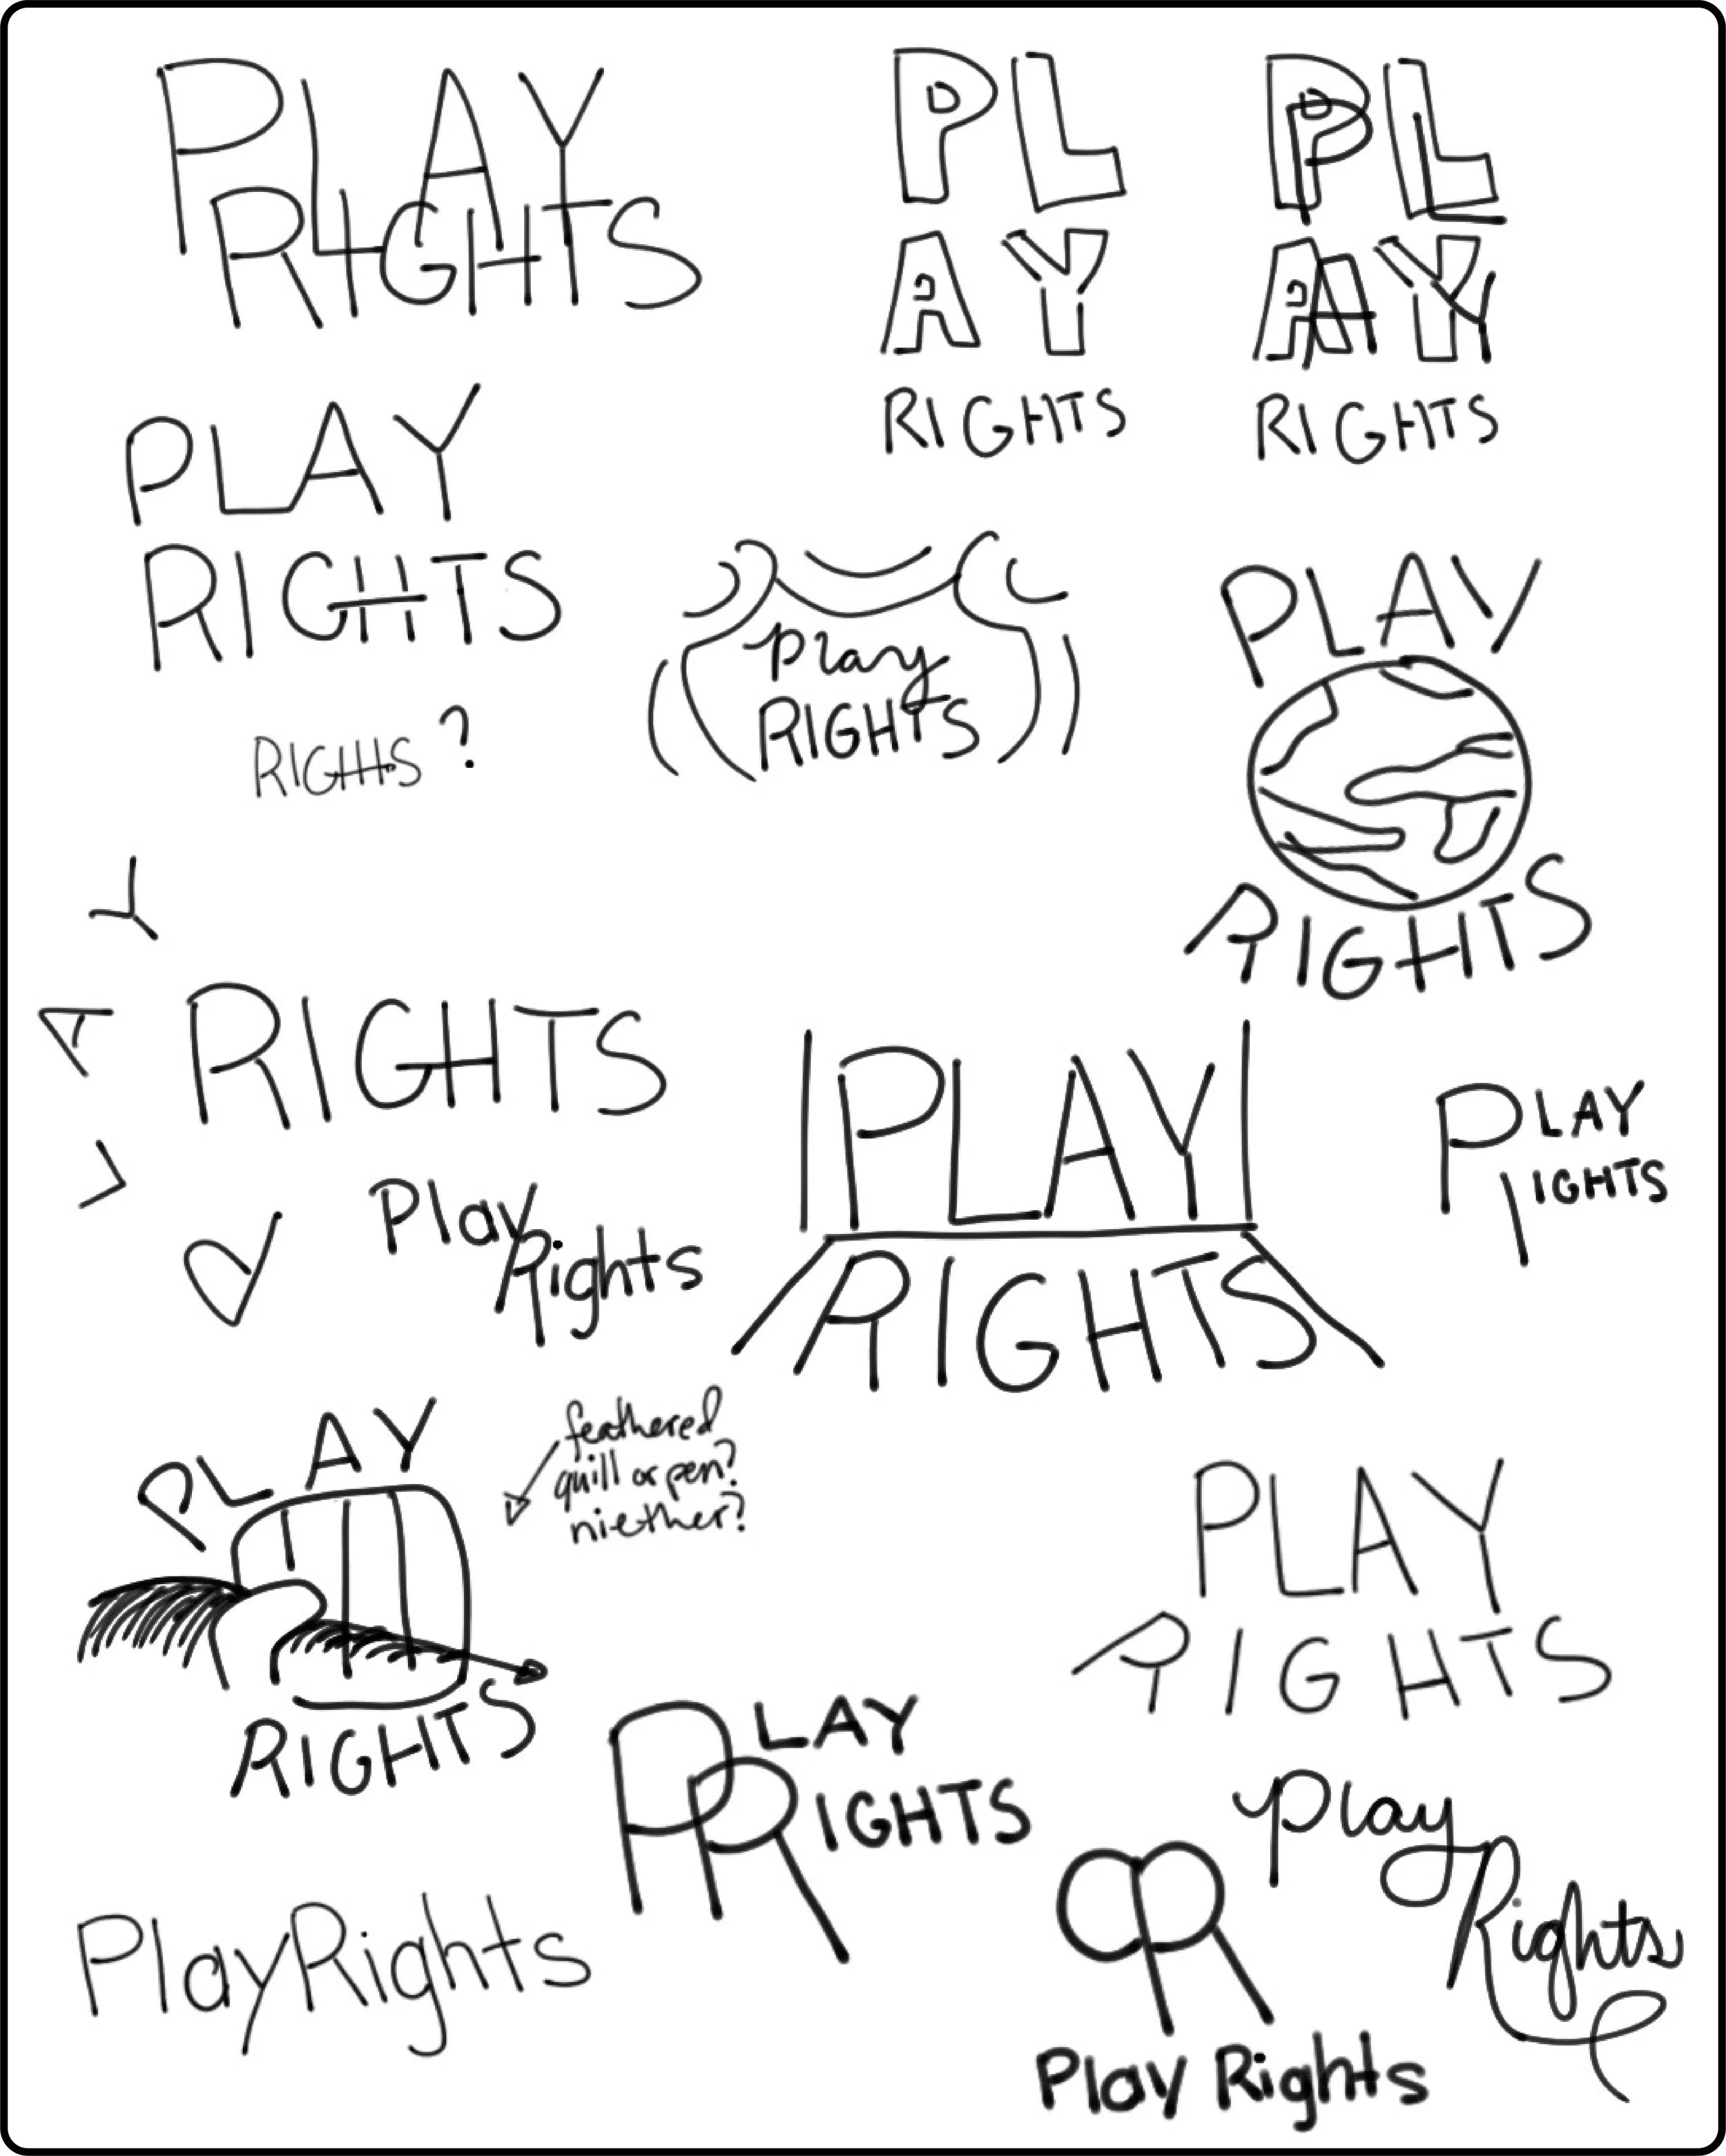 PLAY
RIGHTS
PL
AY
RIGHTS
PL
AY
RIGHTS
PLAY
RIGHTS
RIGHTS?
play
RIGHTS
PLAY
RIGHTS
PLAY
RIGHTS
Play
Rights
PLAY
RIGHTS
PLAY
RIGHTS
PLAY
RIGHTS
feathered
quill or pen?
niether?
PLAY
RIGHTS
PLAY
RIGHTS
PlayRights
PR
Play Rights
play
Rights